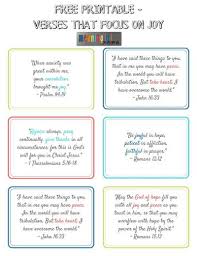 FREE PRINTABLE ~
VERSES THAT FOCUS ON JOY
"When anxiety was
great within me,
your consolation
brought me joy."
~ Psalm 94:19
"I have said these things to you,
that in me you may have peace.
In the world you will have
tribulation. But take heart; I have
overcome the world."
~ John 16:33
"Rejoice always, pray
continually, give thanks in all
circumstances; for this is God's
will for you in Christ Jesus."
~ 1 Thessalonians 5:16-18
"Be joyful in hope,
patient in affliction,
faithful in prayer."
~ Romans 12:12
"I have said these things to you,
that in me you may have peace.
In the world you will have
tribulation. But take heart; I have
overcome the world."
~ John 16:33
"May the God of hope fill you
with all joy and peace as you
trust in him so that you may
overflow with hope by the power
of the Holy Spirit."
~ Romans 15:13